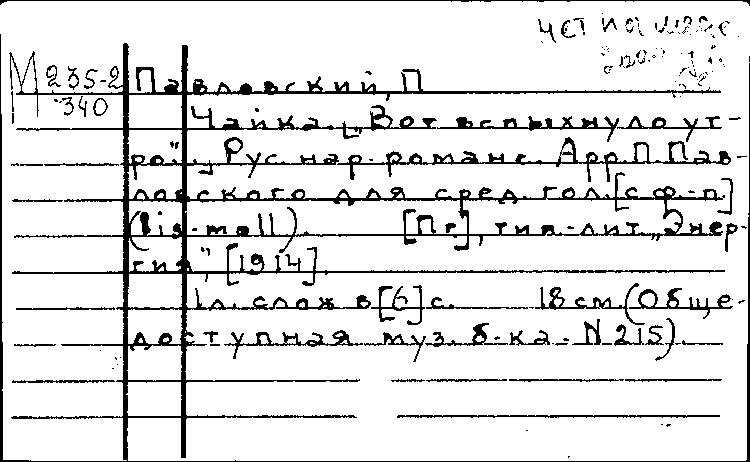 чет на
М 235-2
340
Павловский, П
Чайка. [„Вот вспыхнуло ут-
ро“.] Рус. нар. романс. Арр. П. Пав-
ловского для сред. гол. [с ф.-п.]
(his-moll). [Пг.], тип.-лит. „Энер-
гия“, [1914].
1 л. слож в [6] с. 18 см. (Обще-
доступная муз. б-ка. N 215).